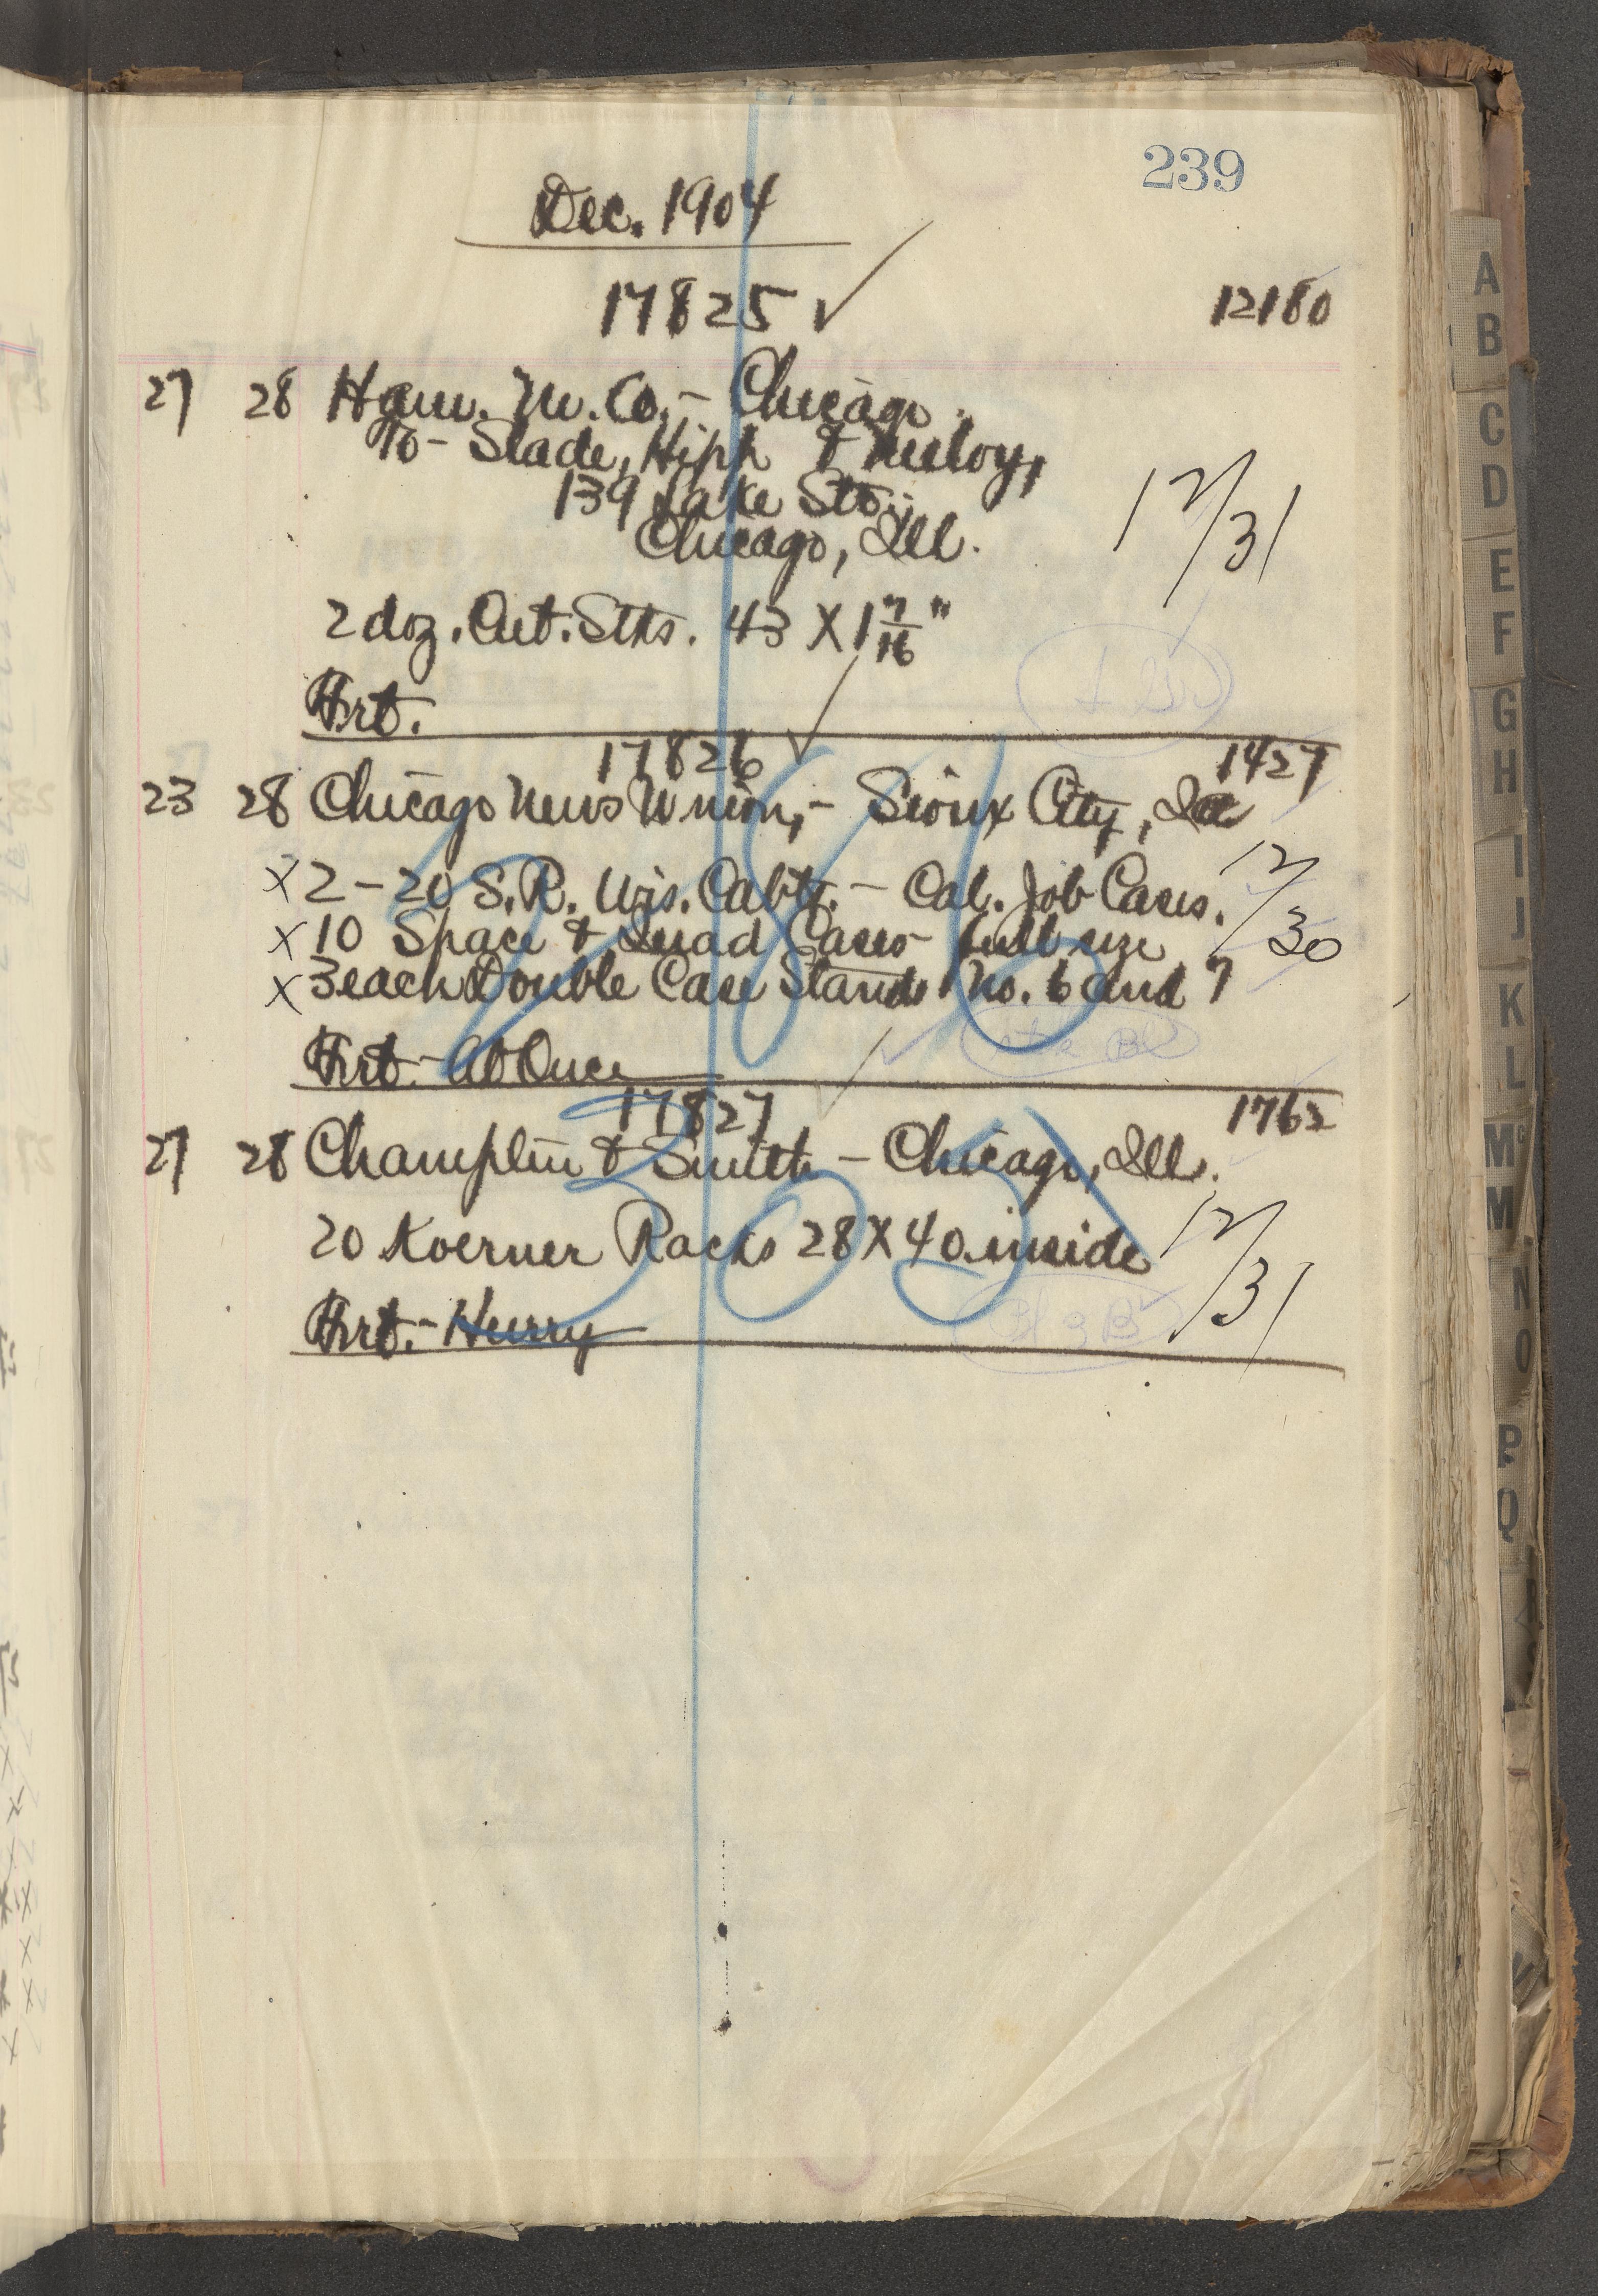 239
Dec. 1904
17825 ✓ 12180
27 28 Ham. M. Co. - Chicago
To - Slade, Hipp & Meloy,
139 Lake St.
Chicago, Ill.
12/31
2 doz. Cut. Stks. 43 X 1 7/16"
Frt.
17826 ✓ 1427
23 28 Chicago News Union, - Sioux City, Ia
X 2 - 20 S.R. Wis. Cabts. - Cal. Job Cases. 12/30
X 10 Space & Quad Cases - full size
X 3 each Double Case Stands No. 6 and 7
Frt. - At Once
17827 ✓ 1762
27 28 Champlin & Smith - Chicago, Ill.
20 Koerner Racks 28 X 40 inside 12/31
Frt. - Hurry
A
B
C
D
E
F
G
H
I
J
K
L
Mc
M
N
O
P
Q